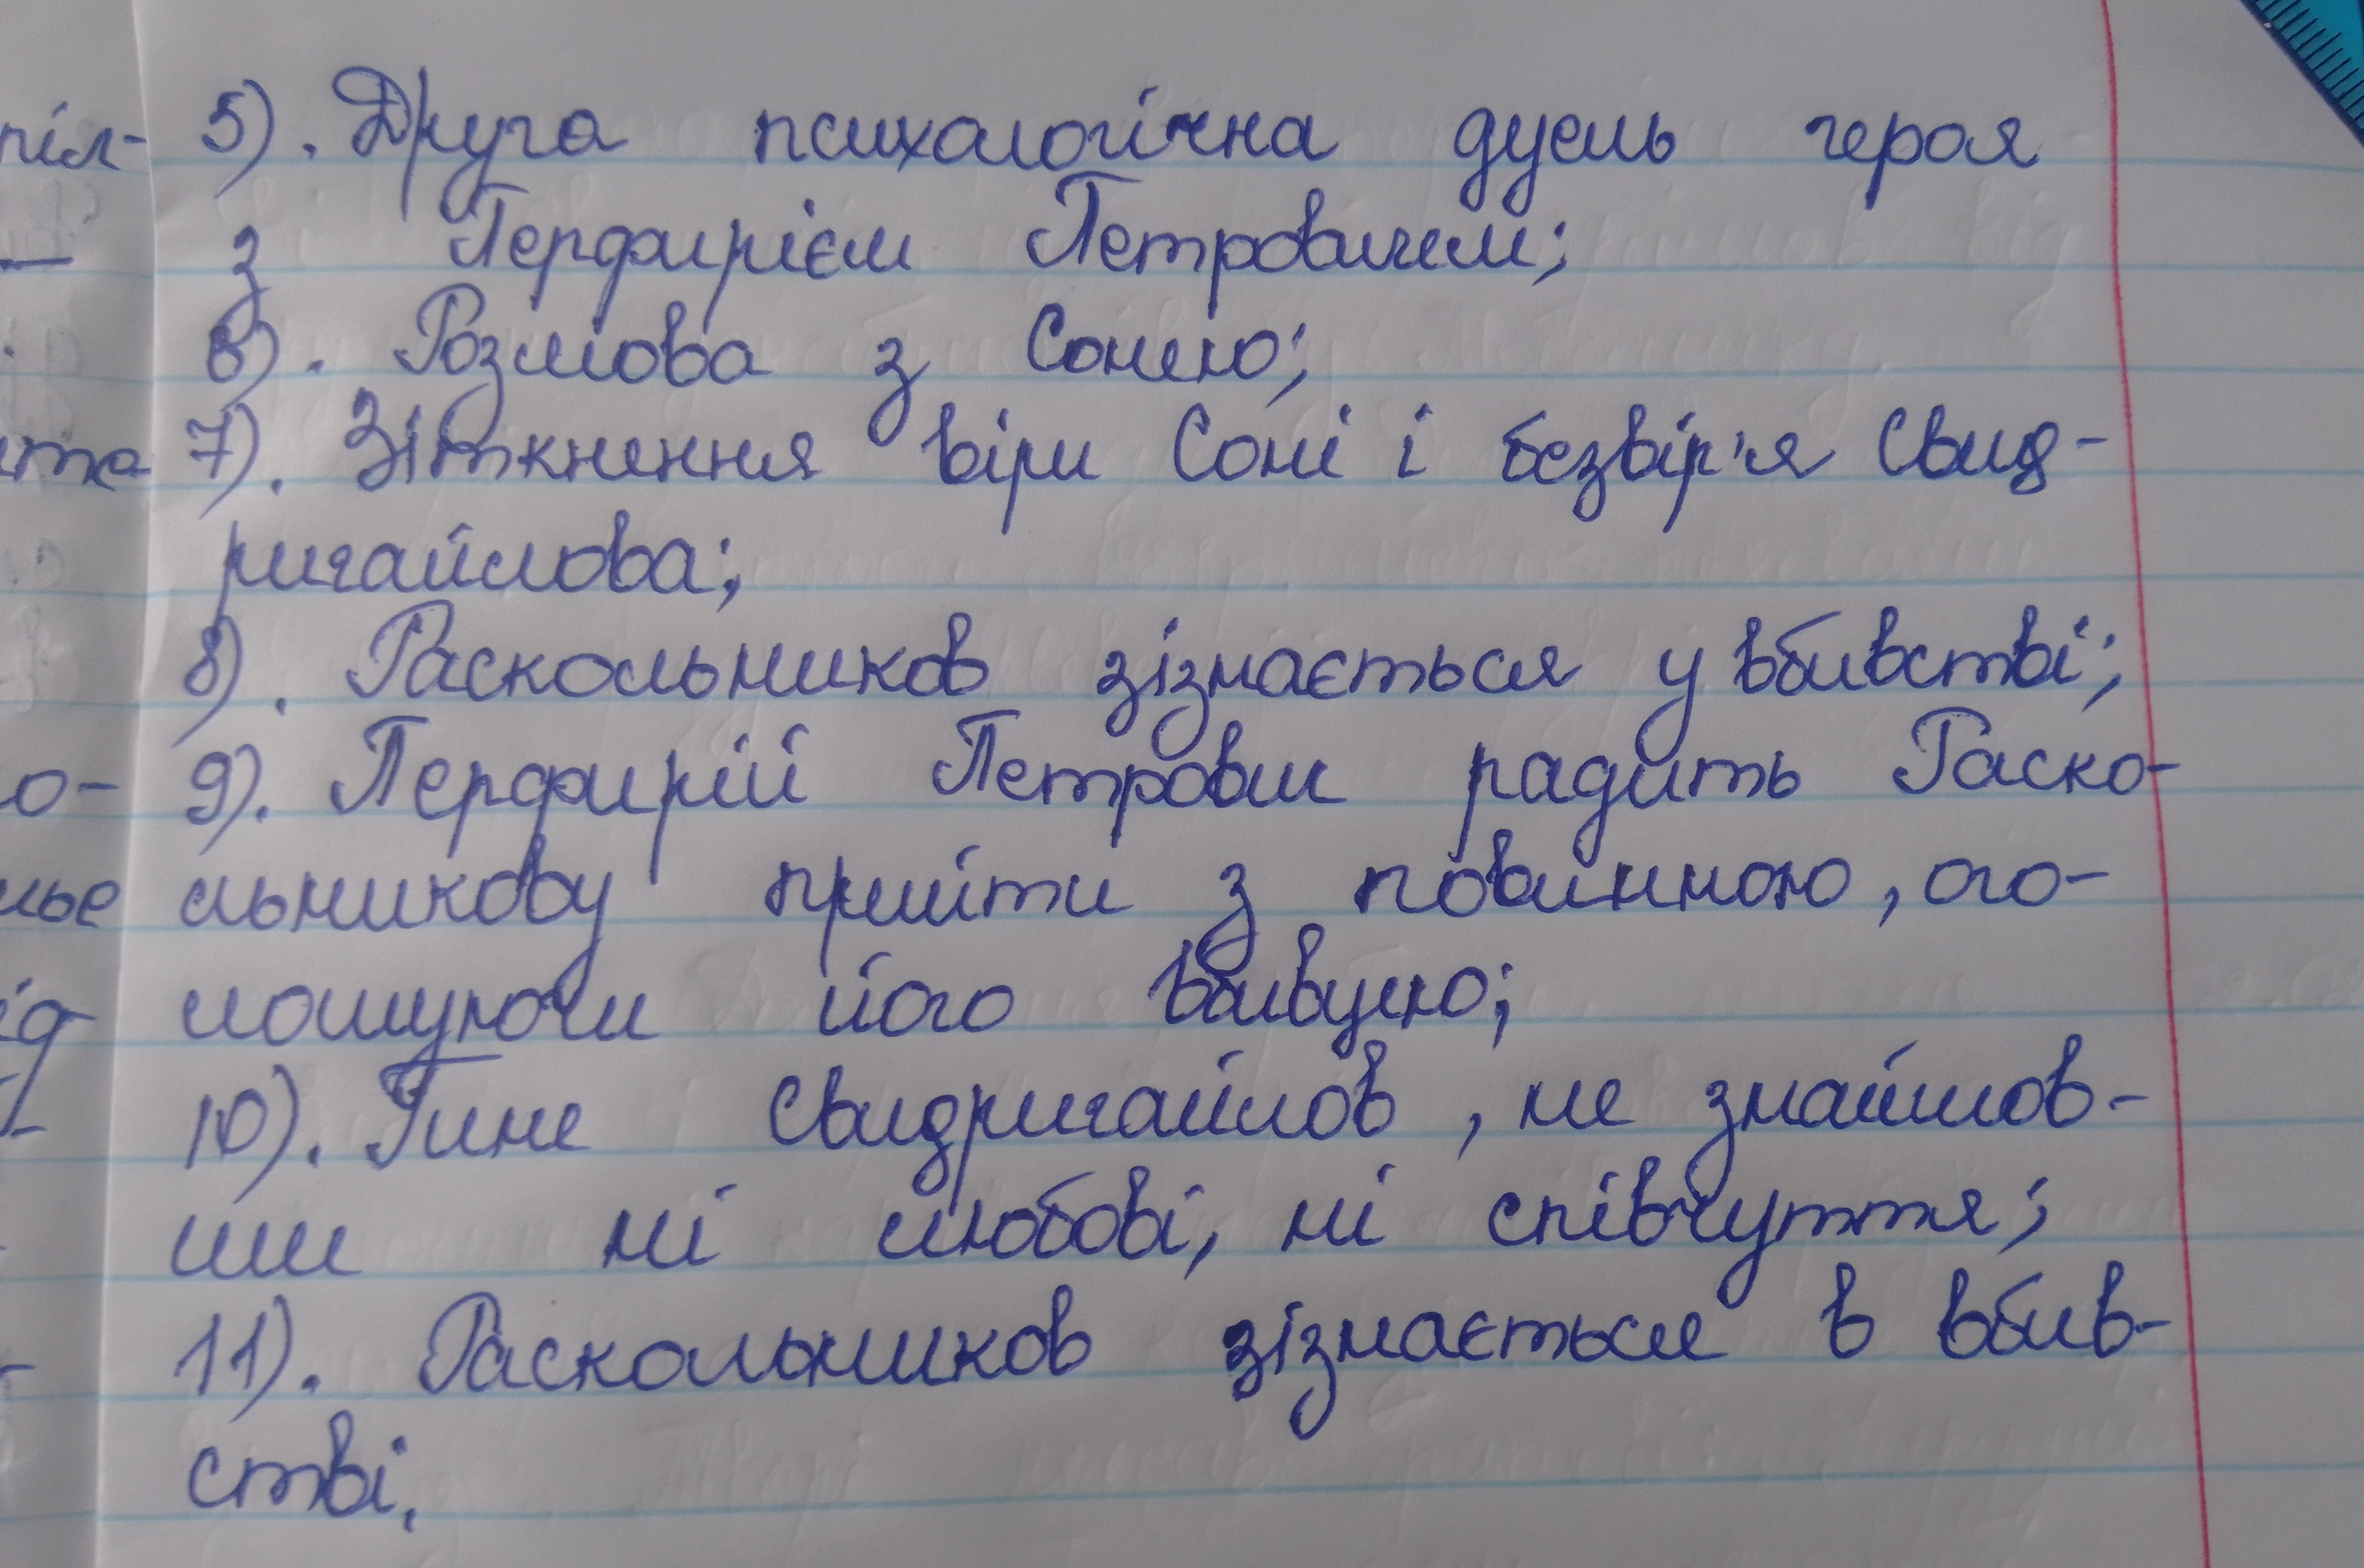 5). Друга психологічна дуель героя
з Перфирієм Петровичем;
6). Розмова з Сонею;
7). Зіткнення віри Соні і безвір'я Свид-
ригайлова;
8). Раскольников зізнається у вбивстві;
9). Перфирій Петрович радить Раско-
льникову прийти з повинною, ого-
лошуючи його вбивцею;
10). Гине Свидригайлов, не знайшов-
ши ні любові, ні співчуття;
11). Раскольников зізнається в вбив-
стві.